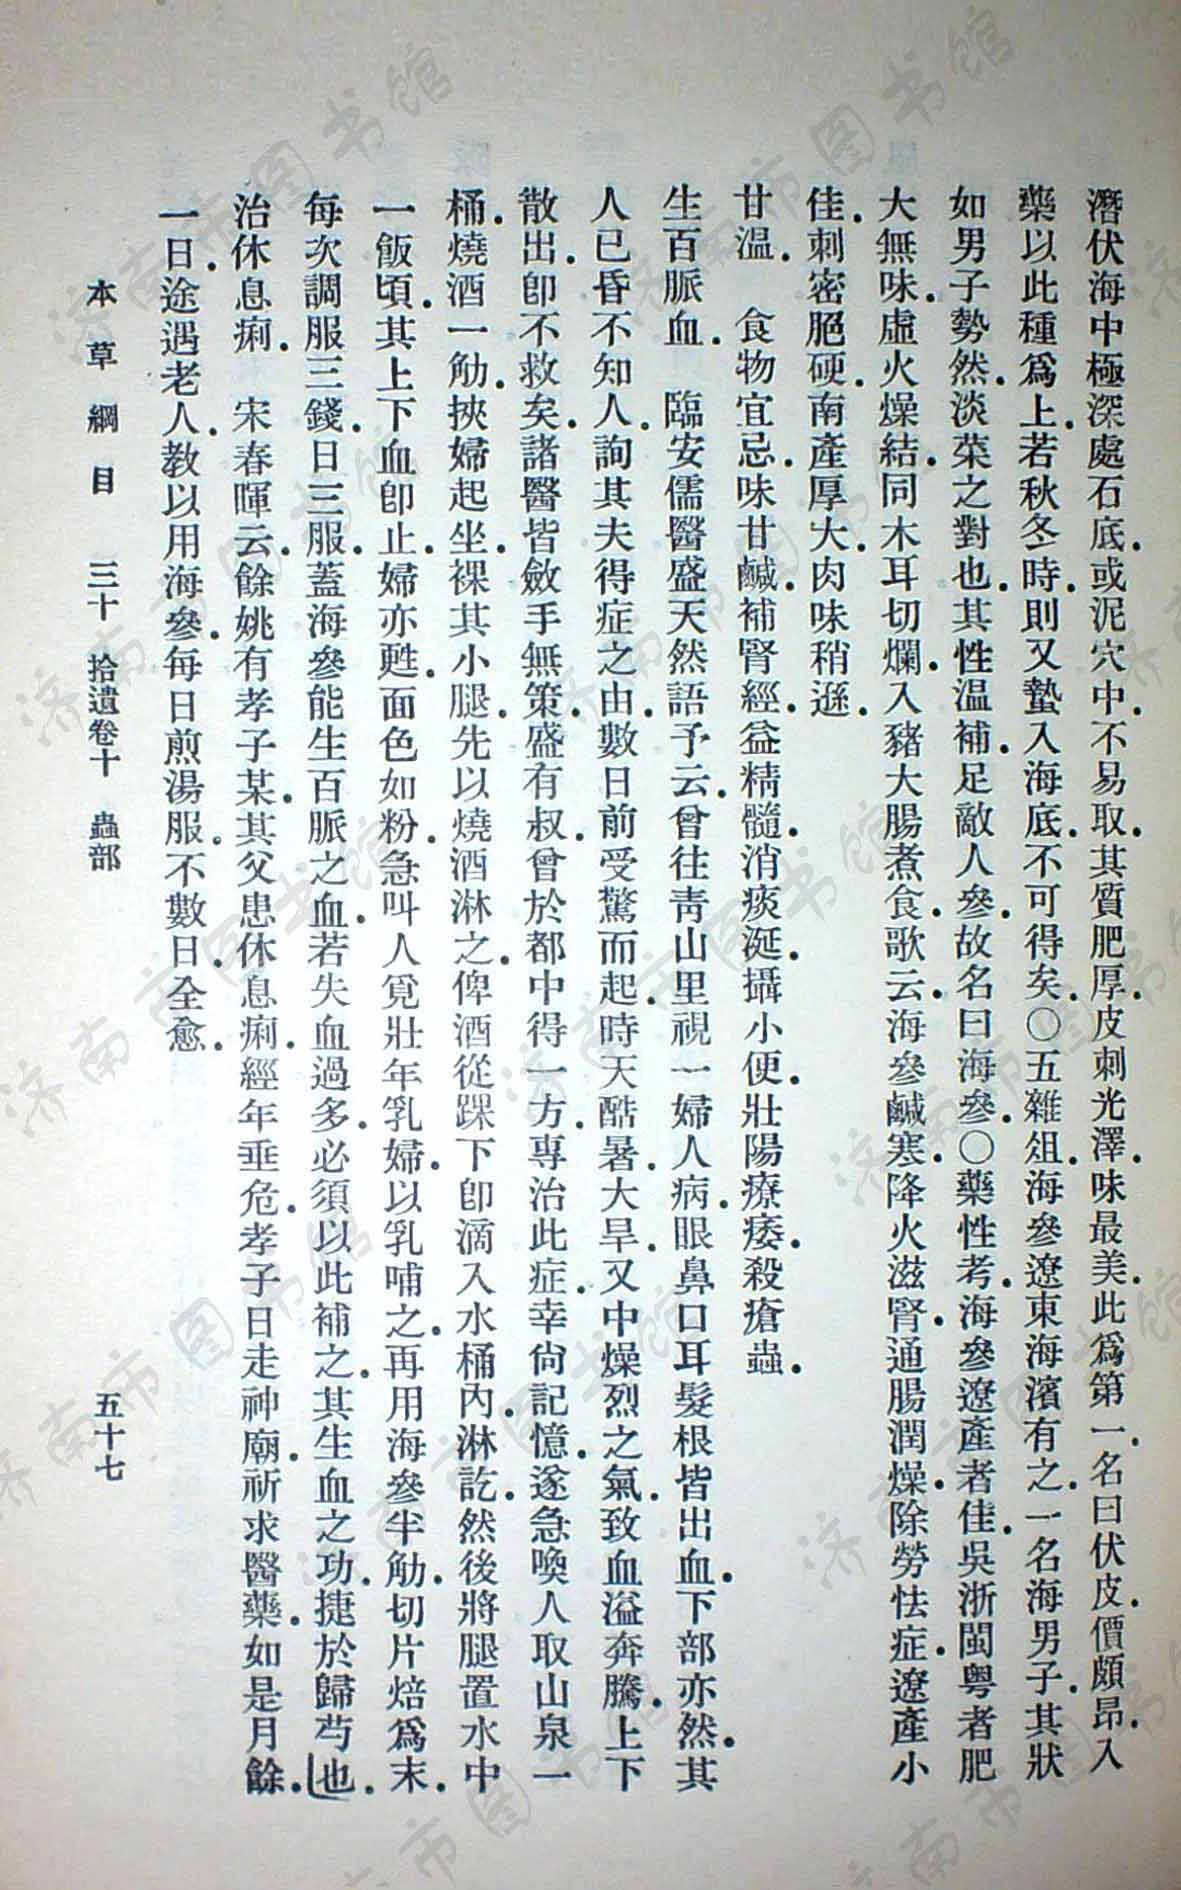 潛伏海中極深處石底.或泥穴中.不易取.其質肥厚.皮刺光澤.味最美.此爲第一.名曰伏皮.價頗昂.入
藥以此種爲上.若秋冬時.則又蟄入海底.不可得矣.○五雜俎.海參遼東海濱有之.一名海男子.其狀
如男子勢然.淡菜之對也.其性溫補.足敵人參.故名曰海參.○藥性考.海參遼產者佳.吳浙閩粤者肥
大無味.虛火燥結.同木耳切爛.入豬大腸煮食.歌云.海參鹹寒.降火滋腎.通腸潤燥.除勞怯症.遼產小
佳.刺密脃硬.南產厚大.肉味稍遜.
甘溫　食物宜忌.味甘鹹.補腎經.益精髓.消痰涎.攝小便.壯陽療痿.殺瘡蟲.
生百脈血.　臨安儒醫盛天然語予云.曾往青山里視一婦人病.眼鼻口耳髮根皆出血.下部亦然.其
人已昏不知人.詢其夫得症之由.數日前受驚而起.時天酷暑.大旱.又中燥烈之氣.致血溢奔騰.上下
散出.卽不救矣.諸醫皆斂手無策.盛有叔.曾於都中得一方.專治此症.幸尙記憶.遂急喚人取山泉一
桶.燒酒一觔.挾婦起坐.裸其小腿.先以燒酒淋之.俾酒從踝下卽滴入水桶內.淋訖.然後將腿置水中
一飯頃.其上下血卽止.婦亦甦.面色如粉.急叫人覓壯年乳婦.以乳哺之.再用海參半觔.切片焙爲末.
每次調服三錢.日三服.蓋海參能生百脈之血.若失血過多.必須以此補之.其生血之功.捷於歸芎也.
治休息痢.　宋春暉云.餘姚有孝子某.其父患休息痢.經年垂危.孝子日走神廟.祈求醫藥.如是月餘.
一日.途遇老人.教以用海參.每日煎湯服.不數日.全愈.
本草綱目　三十　拾遺卷十　蟲部　五十七
济南市图书馆